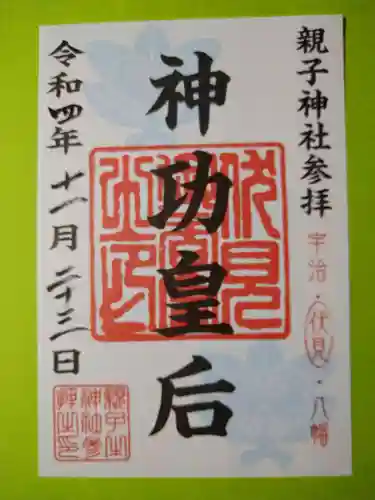 親子神社参拝
宇治・伏見・八幡
神功皇后
令和四年十一月二十三日